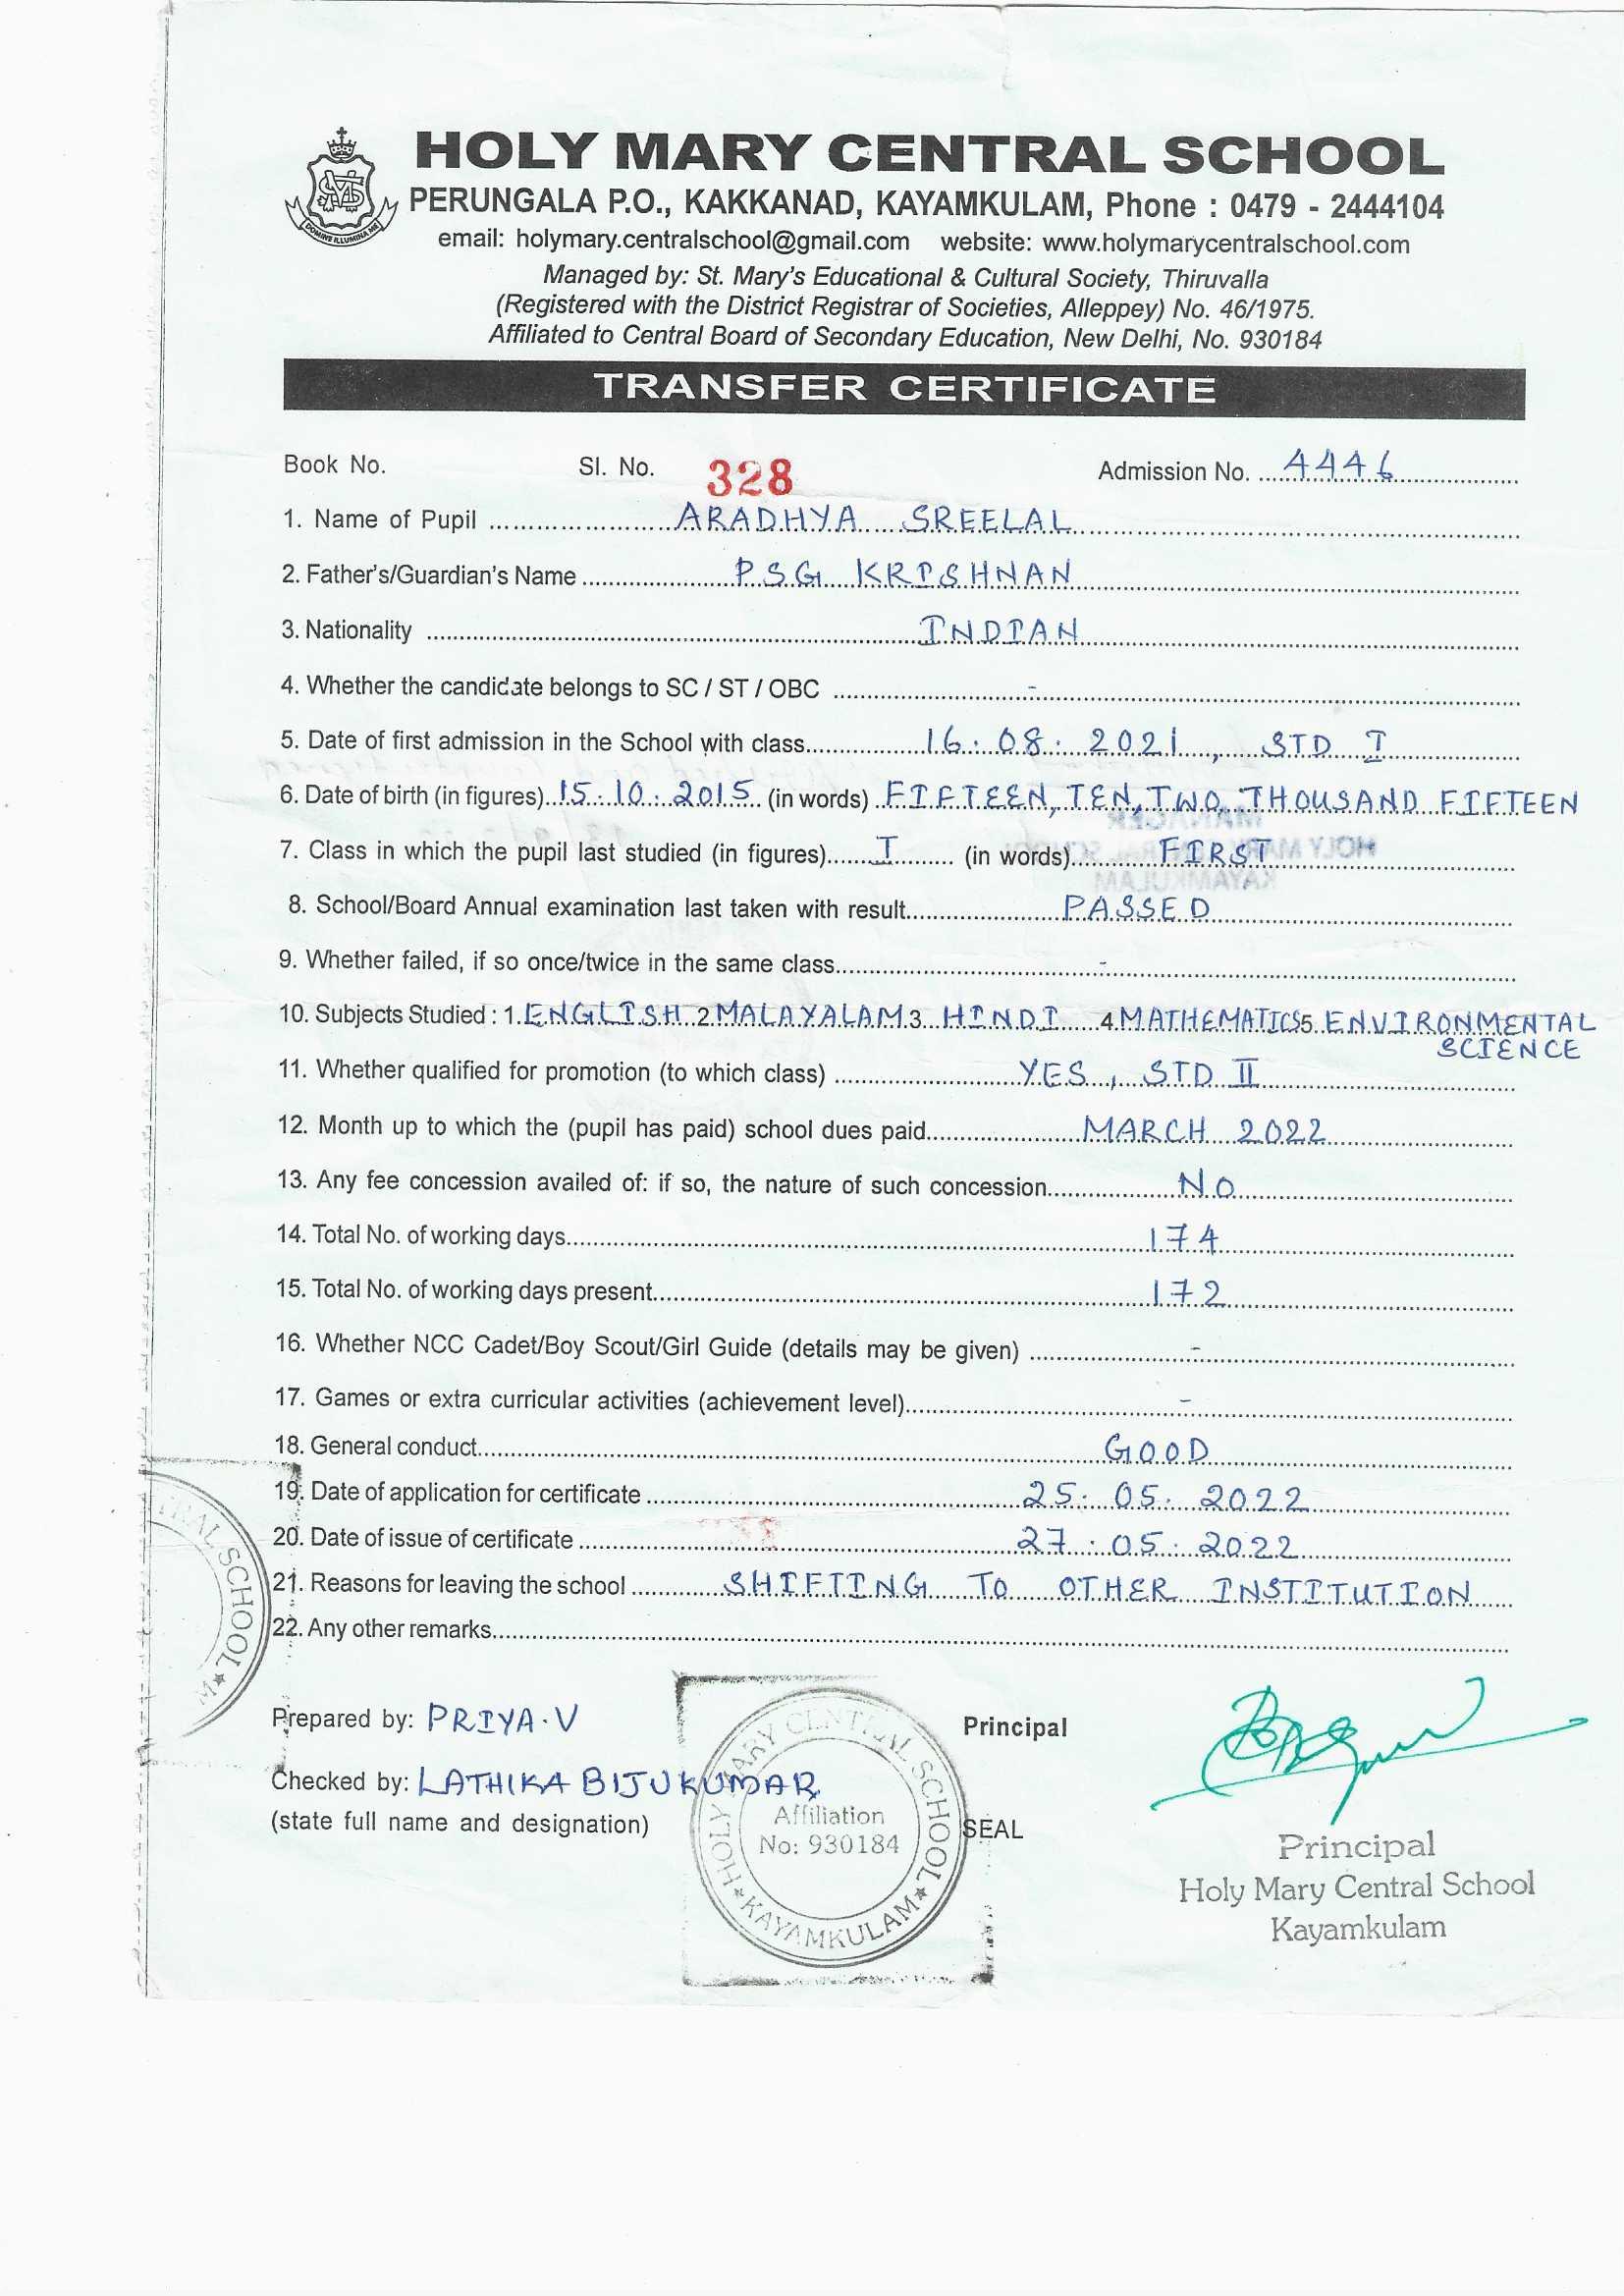 HOLY MARY CENTRAL SCHOOL
PERUNGALA P.O., KAKKANAD, KAYAMKULAM, Phone : 0479 - 2444104
DOMINE ILLUMINA ME
email: holymary.centralschool@gmail.com website: www.holymarycentralschool.com
Managed by: St. Mary's Educational & Cultural Society, Thiruvalla
(Registered with the District Registrar of Societies, Alleppey) No. 46/1975.
Affiliated to Central Board of Secondary Education, New Delhi, No. 930184
TRANSFER CERTIFICATE
Book No. Sl. No. 328 Admission No. 4446
1. Name of Pupil ARADHYA SREELAL
2. Father's/Guardian's Name P.S.G KRISHNAN
3. Nationality INDIAN
4. Whether the candidate belongs to SC / ST / OBC -
5. Date of first admission in the School with class 16.08.2021, STD I
6. Date of birth (in figures) 15.10.2015 (in words) FIFTEEN, TEN, TWO THOUSAND FIFTEEN
7. Class in which the pupil last studied (in figures) I (in words) FIRST
8. School/Board Annual examination last taken with result PASSED
9. Whether failed, if so once/twice in the same class -
10. Subjects Studied : 1. ENGLISH 2 MALAYALAM 3 HINDI 4. MATHEMATICS 5. ENVIRONMENTAL
SCIENCE
11. Whether qualified for promotion (to which class) YES, STD II
12. Month up to which the (pupil has paid) school dues paid MARCH 2022
13. Any fee concession availed of: if so, the nature of such concession NO
14. Total No. of working days 174
15. Total No. of working days present 172
16. Whether NCC Cadet/Boy Scout/Girl Guide (details may be given) -
17. Games or extra curricular activities (achievement level) -
18. General conduct GOOD
19. Date of application for certificate 25.05.2022
20. Date of issue of certificate 27.05.2022
21. Reasons for leaving the school SHIFTING TO OTHER INSTITUTION
22. Any other remarks
Prepared by: PRIYA.V Principal
Checked by: LATHIKA BIJUKUMAR
(state full name and designation) SEAL
HOLY MARY CENTRAL SCHOOL
Affiliation
No: 930184
KAYAMKULAM
Principal
Holy Mary Central School
Kayamkulam